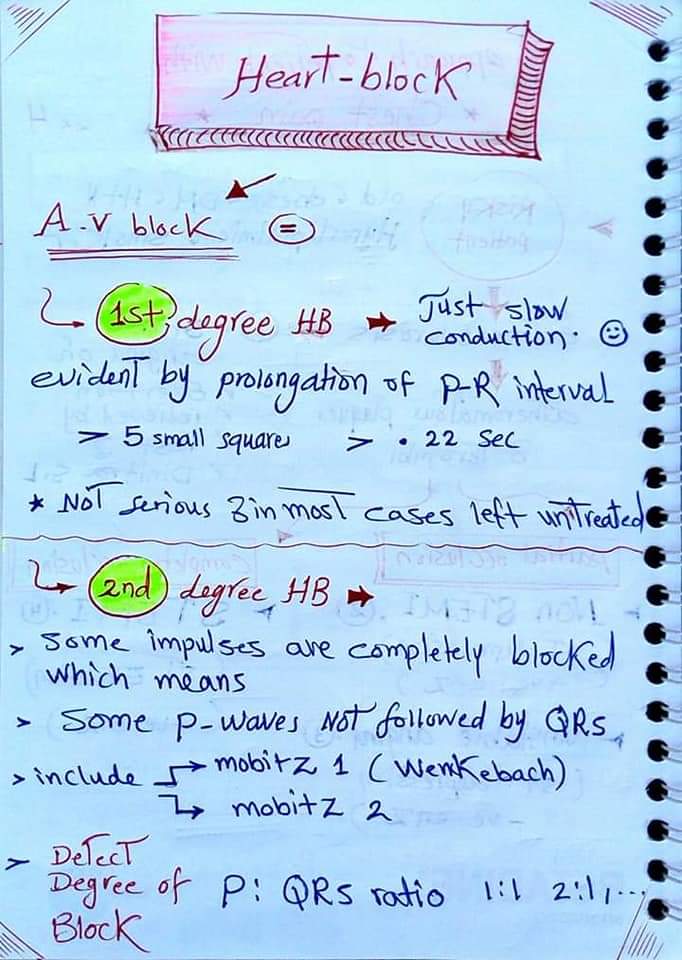 Heart-block
A-V block =
1st degree HB → Just slow
conduction. ☺
evident by prolongation of P-R interval
> 5 small square > .22 sec
* Not serious & in most cases left untreated
2nd degree HB →
> Some impulses are completely blocked
which means
> Some P-waves NOT followed by QRS
> include → mobitz 1 (Wenkebach)
→ mobitz 2
> Detect
Degree of P: QRS ratio 1:1 2:1,...
Block